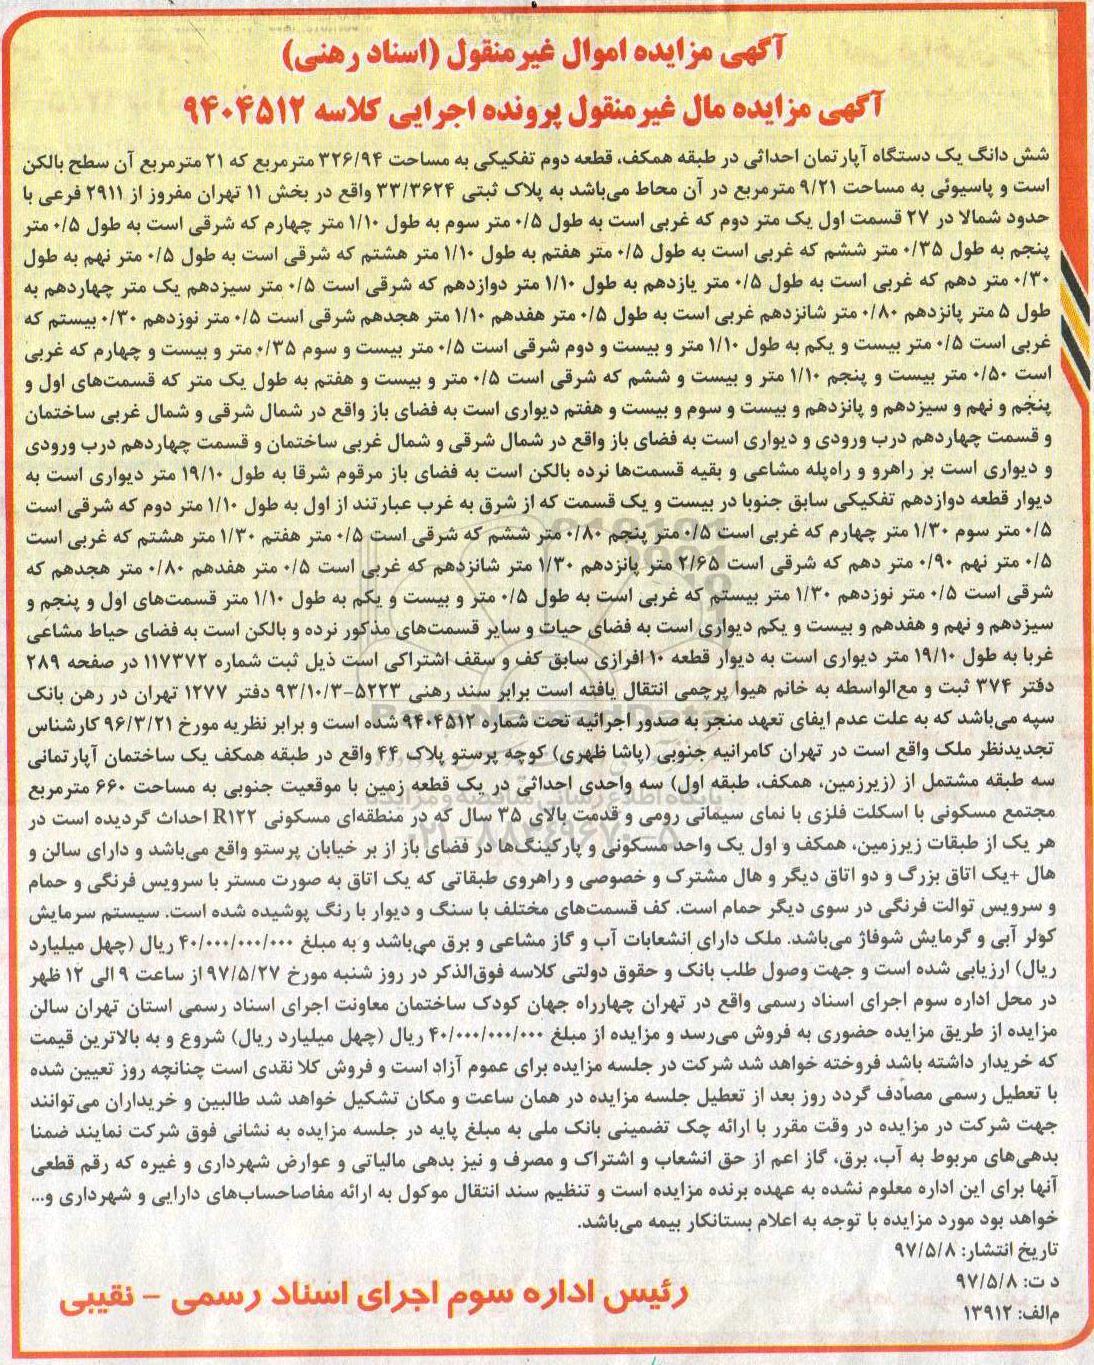 آگهی مزایده اموال غیرمنقول (اسناد رهنی)
آگهی مزایده مال غیرمنقول پرونده اجرایی کلاسه ۹۴۰۴۵۱۲
شش دانگ یک دستگاه آپارتمان احداثی در طبقه همکف، قطعه دوم تفکیکی به مساحت ۳۲۶/۹۴ مترمربع که ۲۱ مترمربع آن سطح بالکن
است و پاسیوئی به مساحت ۹/۲۱ مترمربع در آن محاط می‌باشد به پلاک ثبتی ۳۳/۳۶۲۴ واقع در بخش ۱۱ تهران مفروز از ۲۹۱۱ فرعی با
حدود شمالا در ۲۷ قسمت اول یک متر دوم که غربی است به طول ۰/۵ متر سوم به طول ۱/۱۰ متر چهارم که شرقی است به طول ۰/۵ متر
پنجم به طول ۰/۳۵ متر ششم که غربی است به طول ۰/۵ متر هفتم به طول ۱/۱۰ متر هشتم که شرقی است به طول ۰/۵ متر نهم به طول
۰/۳۰ متر دهم که غربی است به طول ۰/۵ متر یازدهم به طول ۱/۱۰ متر دوازدهم که شرقی است ۰/۵ متر سیزدهم یک متر چهاردهم به
طول ۵ متر پانزدهم ۰/۸۰ متر شانزدهم غربی است به طول ۰/۵ متر هفدهم ۱/۱۰ متر هجدهم شرقی است ۰/۵ متر نوزدهم ۰/۳۰ بیستم که
غربی است ۰/۵ متر بیست و یکم به طول ۱/۱۰ متر و بیست و دوم شرقی است ۰/۵ متر بیست و سوم ۰/۳۵ متر و بیست و چهارم که غربی
است ۰/۵۰ متر بیست و پنجم ۱/۱۰ متر و بیست و ششم که شرقی است ۰/۵ متر و بیست و هفتم به طول یک متر که قسمت‌های اول و
پنجم و نهم و سیزدهم و پانزدهم و بیست و سوم و بیست و هفتم دیواری است به فضای باز واقع در شمال شرقی و شمال غربی ساختمان
و قسمت چهاردهم درب ورودی و دیواری است به فضای باز واقع در شمال شرقی و شمال غربی ساختمان و قسمت چهاردهم درب ورودی
و دیواری است بر راهرو و راه‌پله مشاعی و بقیه قسمت‌ها نرده بالکن است به فضای باز مرقوم شرقا به طول ۱۹/۱۰ متر دیواری است به
دیوار قطعه دوازدهم تفکیکی سابق جنوبا در بیست و یک قسمت که از شرق به غرب عبارتند از اول به طول ۱/۱۰ متر دوم که شرقی است
۰/۵ متر سوم ۱/۳۰ متر چهارم که غربی است ۰/۵ متر پنجم ۰/۸۰ متر ششم که شرقی است ۰/۵ متر هفتم ۱/۳۰ متر هشتم که غربی است
۰/۵ متر نهم ۰/۹۰ متر دهم که شرقی است ۲/۶۵ متر پانزدهم ۱/۳۰ متر شانزدهم که غربی است ۰/۵ متر هفدهم ۰/۸۰ متر هجدهم که
شرقی است ۰/۵ متر نوزدهم ۱/۳۰ متر بیستم که غربی است به طول ۰/۵ متر و بیست و یکم به طول ۱/۱۰ متر قسمت‌های اول و پنجم و
سیزدهم و نهم و هفدهم و بیست و یکم دیواری است به فضای حیات و سایر قسمت‌های مذکور نرده و بالکن است به فضای حیاط مشاعی
غربا به طول ۱۹/۱۰ متر دیواری است به دیوار قطعه ۱۰ افرازی سابق کف و سقف اشتراکی است ذیل ثبت شماره ۱۱۷۳۷۲ در صفحه ۲۸۹
دفتر ۳۷۴ ثبت و مع‌الواسطه به خانم هیوا پرچمی انتقال یافته است برابر سند رهنی ۵۲۲۳-۹۳/۱۰/۳ دفتر ۱۲۷۷ تهران در رهن بانک
سپه می‌باشد که به علت عدم ایفای تعهد منجر به صدور اجرائیه تحت شماره ۹۴۰۴۵۱۲ شده است و برابر نظریه مورخ ۹۶/۳/۲۱ کارشناس
تجدیدنظر ملک واقع است در تهران کامرانیه جنوبی (پاشا ظهری) کوچه پرستو پلاک ۴۴ واقع در طبقه همکف یک ساختمان آپارتمانی
سه طبقه مشتمل از (زیرزمین، همکف، طبقه اول) سه واحدی احداثی در یک قطعه زمین با موقعیت جنوبی به مساحت ۶۶۰ مترمربع
مجتمع مسکونی با اسکلت فلزی با نمای سیمانی رومی و قدمت بالای ۳۵ سال که در منطقه‌ای مسکونی R۱۲۲ احداث گردیده است در
هر یک از طبقات زیرزمین، همکف و اول یک واحد مسکونی و پارکینگ‌ها در فضای باز از بر خیابان پرستو واقع می‌باشد و دارای سالن و
هال +یک اتاق بزرگ و دو اتاق دیگر و هال مشترک و خصوصی و راهروی طبقاتی که یک اتاق به صورت مستر با سرویس فرنگی و حمام
و سرویس توالت فرنگی در سوی دیگر حمام است. کف قسمت‌های مختلف با سنگ و دیوار با رنگ پوشیده شده است. سیستم سرمایش
کولر آبی و گرمایش شوفاژ می‌باشد. ملک دارای انشعابات آب و گاز مشاعی و برق می‌باشد و به مبلغ ۴۰/۰۰۰/۰۰۰/۰۰۰ ریال (چهل میلیارد
ریال) ارزیابی شده است و جهت وصول طلب بانک و حقوق دولتی کلاسه فوق‌الذکر در روز شنبه مورخ ۹۷/۵/۲۷ از ساعت ۹ الی ۱۲ ظهر
در محل اداره سوم اجرای اسناد رسمی واقع در تهران چهارراه جهان کودک ساختمان معاونت اجرای اسناد رسمی استان تهران سالن
مزایده از طریق مزایده حضوری به فروش می‌رسد و مزایده از مبلغ ۴۰/۰۰۰/۰۰۰/۰۰۰ ریال (چهل میلیارد ریال) شروع و به بالاترین قیمت
که خریدار داشته باشد فروخته خواهد شد شرکت در جلسه مزایده برای عموم آزاد است و فروش کلا نقدی است چنانچه روز تعیین شده
با تعطیل رسمی مصادف گردد روز بعد از تعطیل جلسه مزایده در همان ساعت و مکان تشکیل خواهد شد طالبین و خریداران می‌توانند
جهت شرکت در مزایده در وقت مقرر با ارائه چک تضمینی بانک ملی به مبلغ پایه در جلسه مزایده به نشانی فوق شرکت نمایند ضمنا
بدهی‌های مربوط به آب، برق، گاز اعم از حق انشعاب و اشتراک و مصرف و نیز بدهی مالیاتی و عوارض شهرداری و غیره که رقم قطعی
آنها برای این اداره معلوم نشده به عهده برنده مزایده است و تنظیم سند انتقال موکول به ارائه مفاصاحساب‌های دارایی و شهرداری و...
خواهد بود مورد مزایده با توجه به اعلام بستانکار بیمه می‌باشد.
تاریخ انتشار: ۹۷/۵/۸
د ت: ۹۷/۵/۸
م‌الف: ۱۳۹۱۲
رئیس اداره سوم اجرای اسناد رسمی - نقیبی